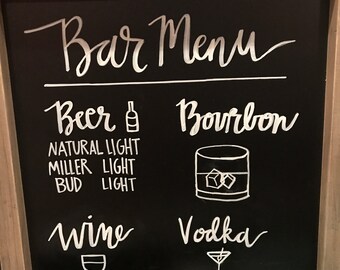 Bar Menu
Beer
NATURAL LIGHT
MILLER LIGHT
BUD LIGHT
Bourbon
Wine
Vodka